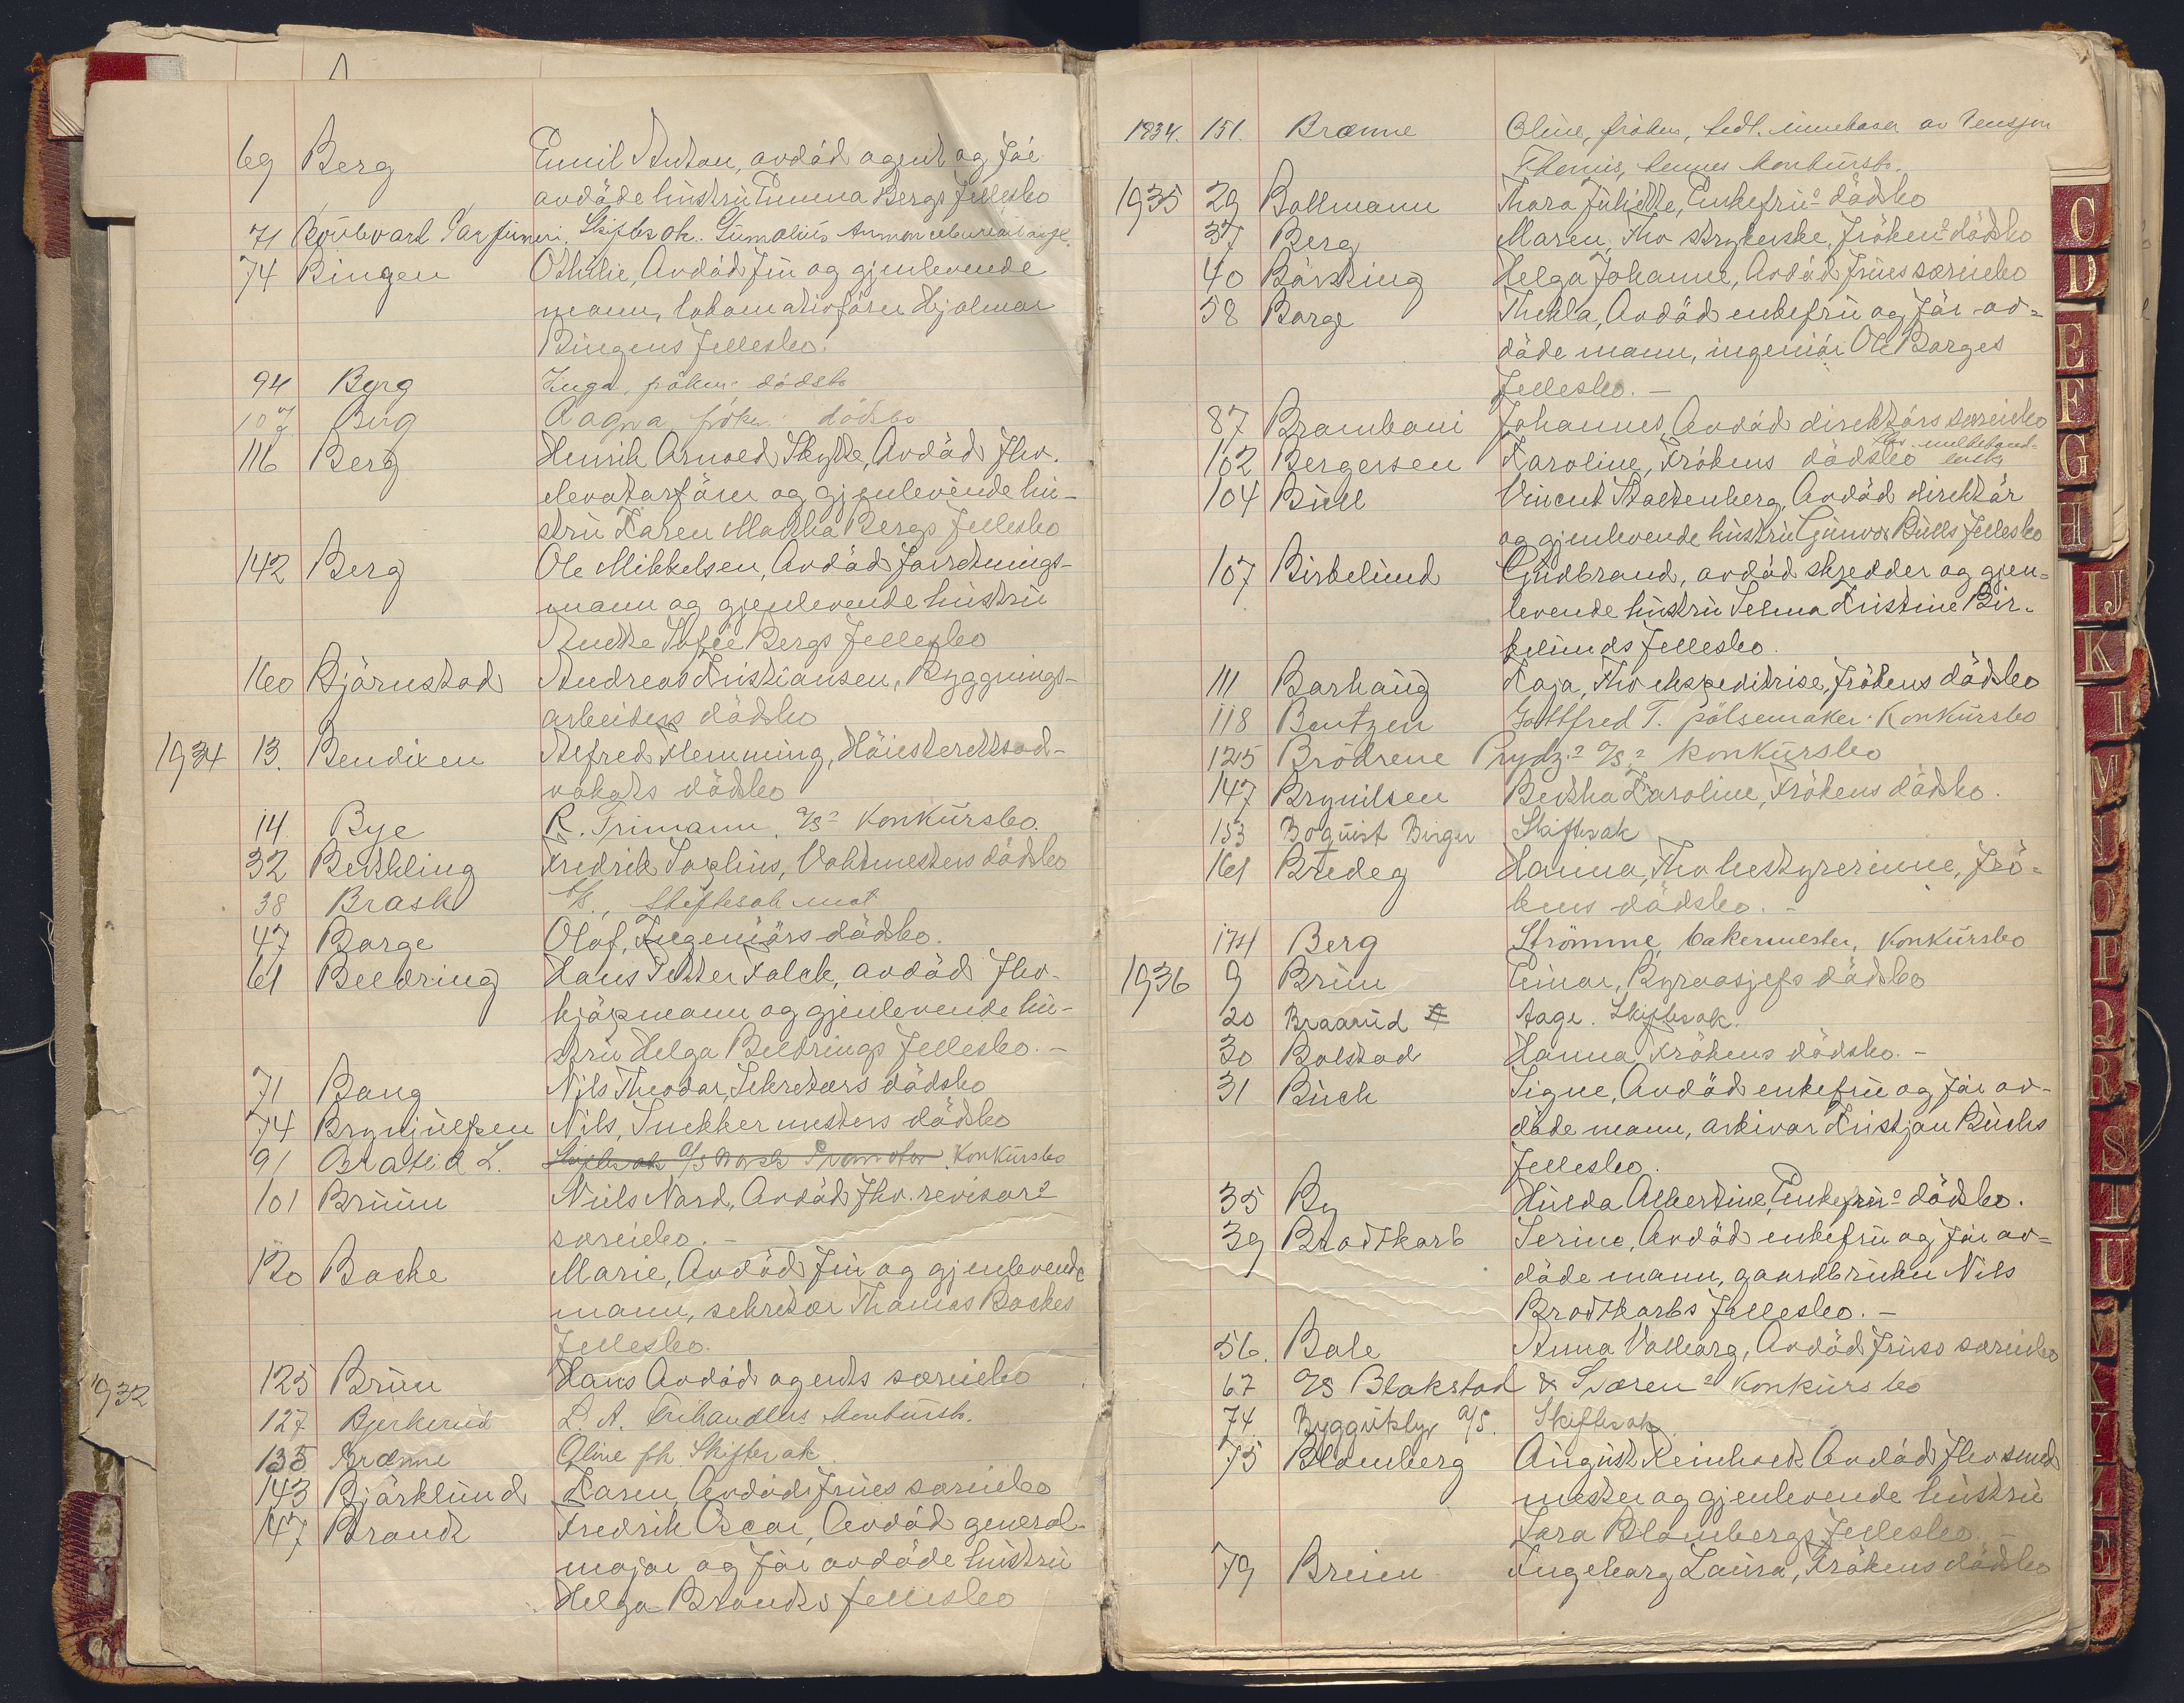 69 Berg Emil Anton, avdöd agent og för
avdöde hustru Emma Bergs fellesbo
71 Boulevard Parfumeri. Skiftesak. Gumælius Annonsebureau
74 Bingen Othilie, Avdöd fru og gjenlevende
mann, lokomotivförer Hjalmar
Bingens fellesbo.
94 Berg Inga, fröken's dödsbo
107 Berg Aagna fröken's dödsbo
116 Berg Henrik Arnoed Skytte, Avdöd fhv.
elevatorförer og gjenlevende hu-
stru Karen Martha Bergs fellesbo
142 Berg Ole Mikkelsen, Avdöd forretnings-
mann og gjenlevende hustru
Anette Sofie Bergs fellesbo
160 Björnstad Andreas Kristiansen, Byggnings-
arbeiders dödsbo
1934 13. Bendixen Alfred Flemming, Höiesterettsad-
vokats dödsbo
14 Bye R. Trimann, A/S' Konkursbo.
32 Berthling Fredrik Sophus, Vaktmesters dödsbo
38 Brask A/S., Skiftesak mot
47 Borge Olaf, Ingeniörs dödsbo.
61 Beldring Hans Petter Falck, avdöd fhv.
kjöpmann og gjenlevende hu-
stru Helga Beldrings fellesbo. -
71 Bang Nils Theodor, Sekretærs dödsbo
74 Brynjulfsen Nils, Snekkermesters dödsbo
91 Bratlid L. Skiftesak A/S Norsk Promotor Konkursbo
101 Bruun Niels Nord, Avdöd fhv. revisors
særiebo. -
120 Backe Marie, Avdöd fru og gjenlevende
mann, sekretær Thomas Backes
fellesbo.
1932
125 Bruu Hans Avdöd agents særiebo
127 Bjerkerud L. A. Trihandlers konkursb.
135 Brænne Oline frk. Skiftesak
143 Björklund Karen Avdöd frues særiebo
147 Brandt Fredrik Oscar, Avdöd general-
major og för avdöde hustru
Helga Brandts fellesbo
1934. 151. Brænne Oline, fröken, fedl. innehaver av Pensjon
Themis, hennes konkursb.
1935 29 Bollmann Thora Juliette, Enkefru's dödsbo
37 Berg Maren, Fhv strykerske, Fröken's dödsbo
40 Börsting Helga Johanne, Avdöd frues særiebo
58 Borge Thekla, Avdöd enkefru og för av-
döde mann, ingeniör Ole Borges
fellesbo. -
87 Brambani Johannes, Avdöd direktörs særiebo
102 Bergersen Karoline, Frökens dödsbo
104 Bull Vincent Stoltenberg, Avdöd direktör
og gjenlevende hustru Gunvor Bulls fellesbo
107 Birkelund Gudbrand, avdöd skredder og gjen-
levende hustru Selma Kristine Bir-
kelunds fellesbo.
111 Barhaug Kaja, Fhv ekspeditrise, Frökens dödsbo
118 Bentzen Gottfred T. pölsemaker. Konkursbo
125 Brödrene Prydz's A/S's konkursbo
147 Brynilsen Bertha Karoline, Frökens dödsbo.
153 Boquist Birger Skiftesak
161 Bredeg Hanna, Fhv bestyrerinne, Frö-
kens dödsbo. -
174 Berg Strömme, bakermester, Konkursbo
1936 9 Bruu Einar, Byraasjefs dödsbo
20 Braarud Aage. Skiftesak.
30 Bolstad Hanna Frökens dödsbo. -
31 Buch Signe, Avdöd enkefru og för av-
döde mann, arkivar Kristjan Buchs
fellesbo.
35 By Hulda Albertine, Enkefru's dödsbo.
39 Brodtkorb Serine, Avdöd enkefru og för av-
döde mann, gaardbruker Nils
Brodtkorbs fellesbo. -
56. Bale Anna Valborg, Avdöd frues særiebo
67 A/S Blakstad & Sværen's Konkursbo
74 Byggutstyr A/S. Skiftesak
75 Blomberg August Reinhold Avdöd fhv smed
mester og gjenlevende hustru
Lara Blombergs fellesbo. -
79 Breien Ingeborg Laura, Frökens dödsbo
C
D
E
F
G
H
IJ
K
L
M
N
O
P
Q
R
S
T
U
V